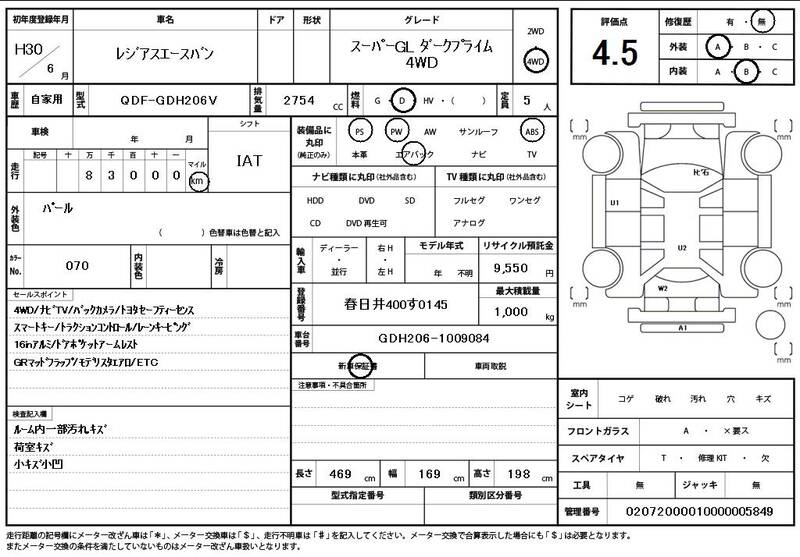 初年度登録年月
H30 / 6 月
車名
レジアスエースバン
ドア
形状
グレード
スーパーGL ダークプライム
4WD
2WD
4WD
評価点
4.5
修復歴 有 ・ 無
外装 A ・ B ・ C
内装 A ・ B ・ C
車歴
自家用
型式
QDF-GDH206V
排気量
2754 CC
燃料
G ・ D ・ HV ・ ( )
定員
5 人
車検
年 月
シフト
IAT
走行
記号 十 万 千 百 十 一
8 3 0 0 0
マイル
km
装備品に
丸印
(純正のみ)
PS PW AW サンルーフ ABS
本革 エアバック ナビ TV
ナビ種類に丸印(社外品含む)
HDD DVD SD
CD DVD再生可
TV種類に丸印(社外品含む)
フルセグ ワンセグ
アナログ
外装色
パール
( )色替車は色替と記入
カラーNo.
070
内装色
冷房
輸入車
ディーラー
・
並行
右H
・
左H
モデル年式
年 不明
リサイクル預託金
9,550 円
登録番号
春日井400す0145
最大積載量
1,000 kg
車台番号
GDH206-1009084
新車保証書
車両取説
セールスポイント
4WD/ナビTV/バックカメラ/トヨタセーフティーセンス
スマートキー/トラクションコントロール/レーンキーピング
16inアルミ/ドアポケットアームレスト
GRマッドフラップ/モデリスタエアロ/ETC
注意事項・不具合箇所
検査記入欄
ルーム内一部汚れキズ
荷室キズ
小キズ小凹
長さ 469 cm
幅 169 cm
高さ 198 cm
型式指定番号
類別区分番号
mm
mm
mm
mm
mm
ヒビ石
U1
U2
W2
A1
室内
シート
コゲ 破れ 汚れ 穴 キズ
フロントガラス
A ・ ×要ス
スペアタイヤ
T ・ 修理KIT ・ 欠
工具 無
ジャッキ 無
管理番号
02072000010000005849
走行距離の記号欄にメーター改ざん車は「*」、メーター交換車は「$」、走行不明車は「#」を記入してください。メーター交換で合算表示した場合にも「$」は必要となります。
またメーター交換の条件を満たしていないものはメーター改ざん車扱いとなります。